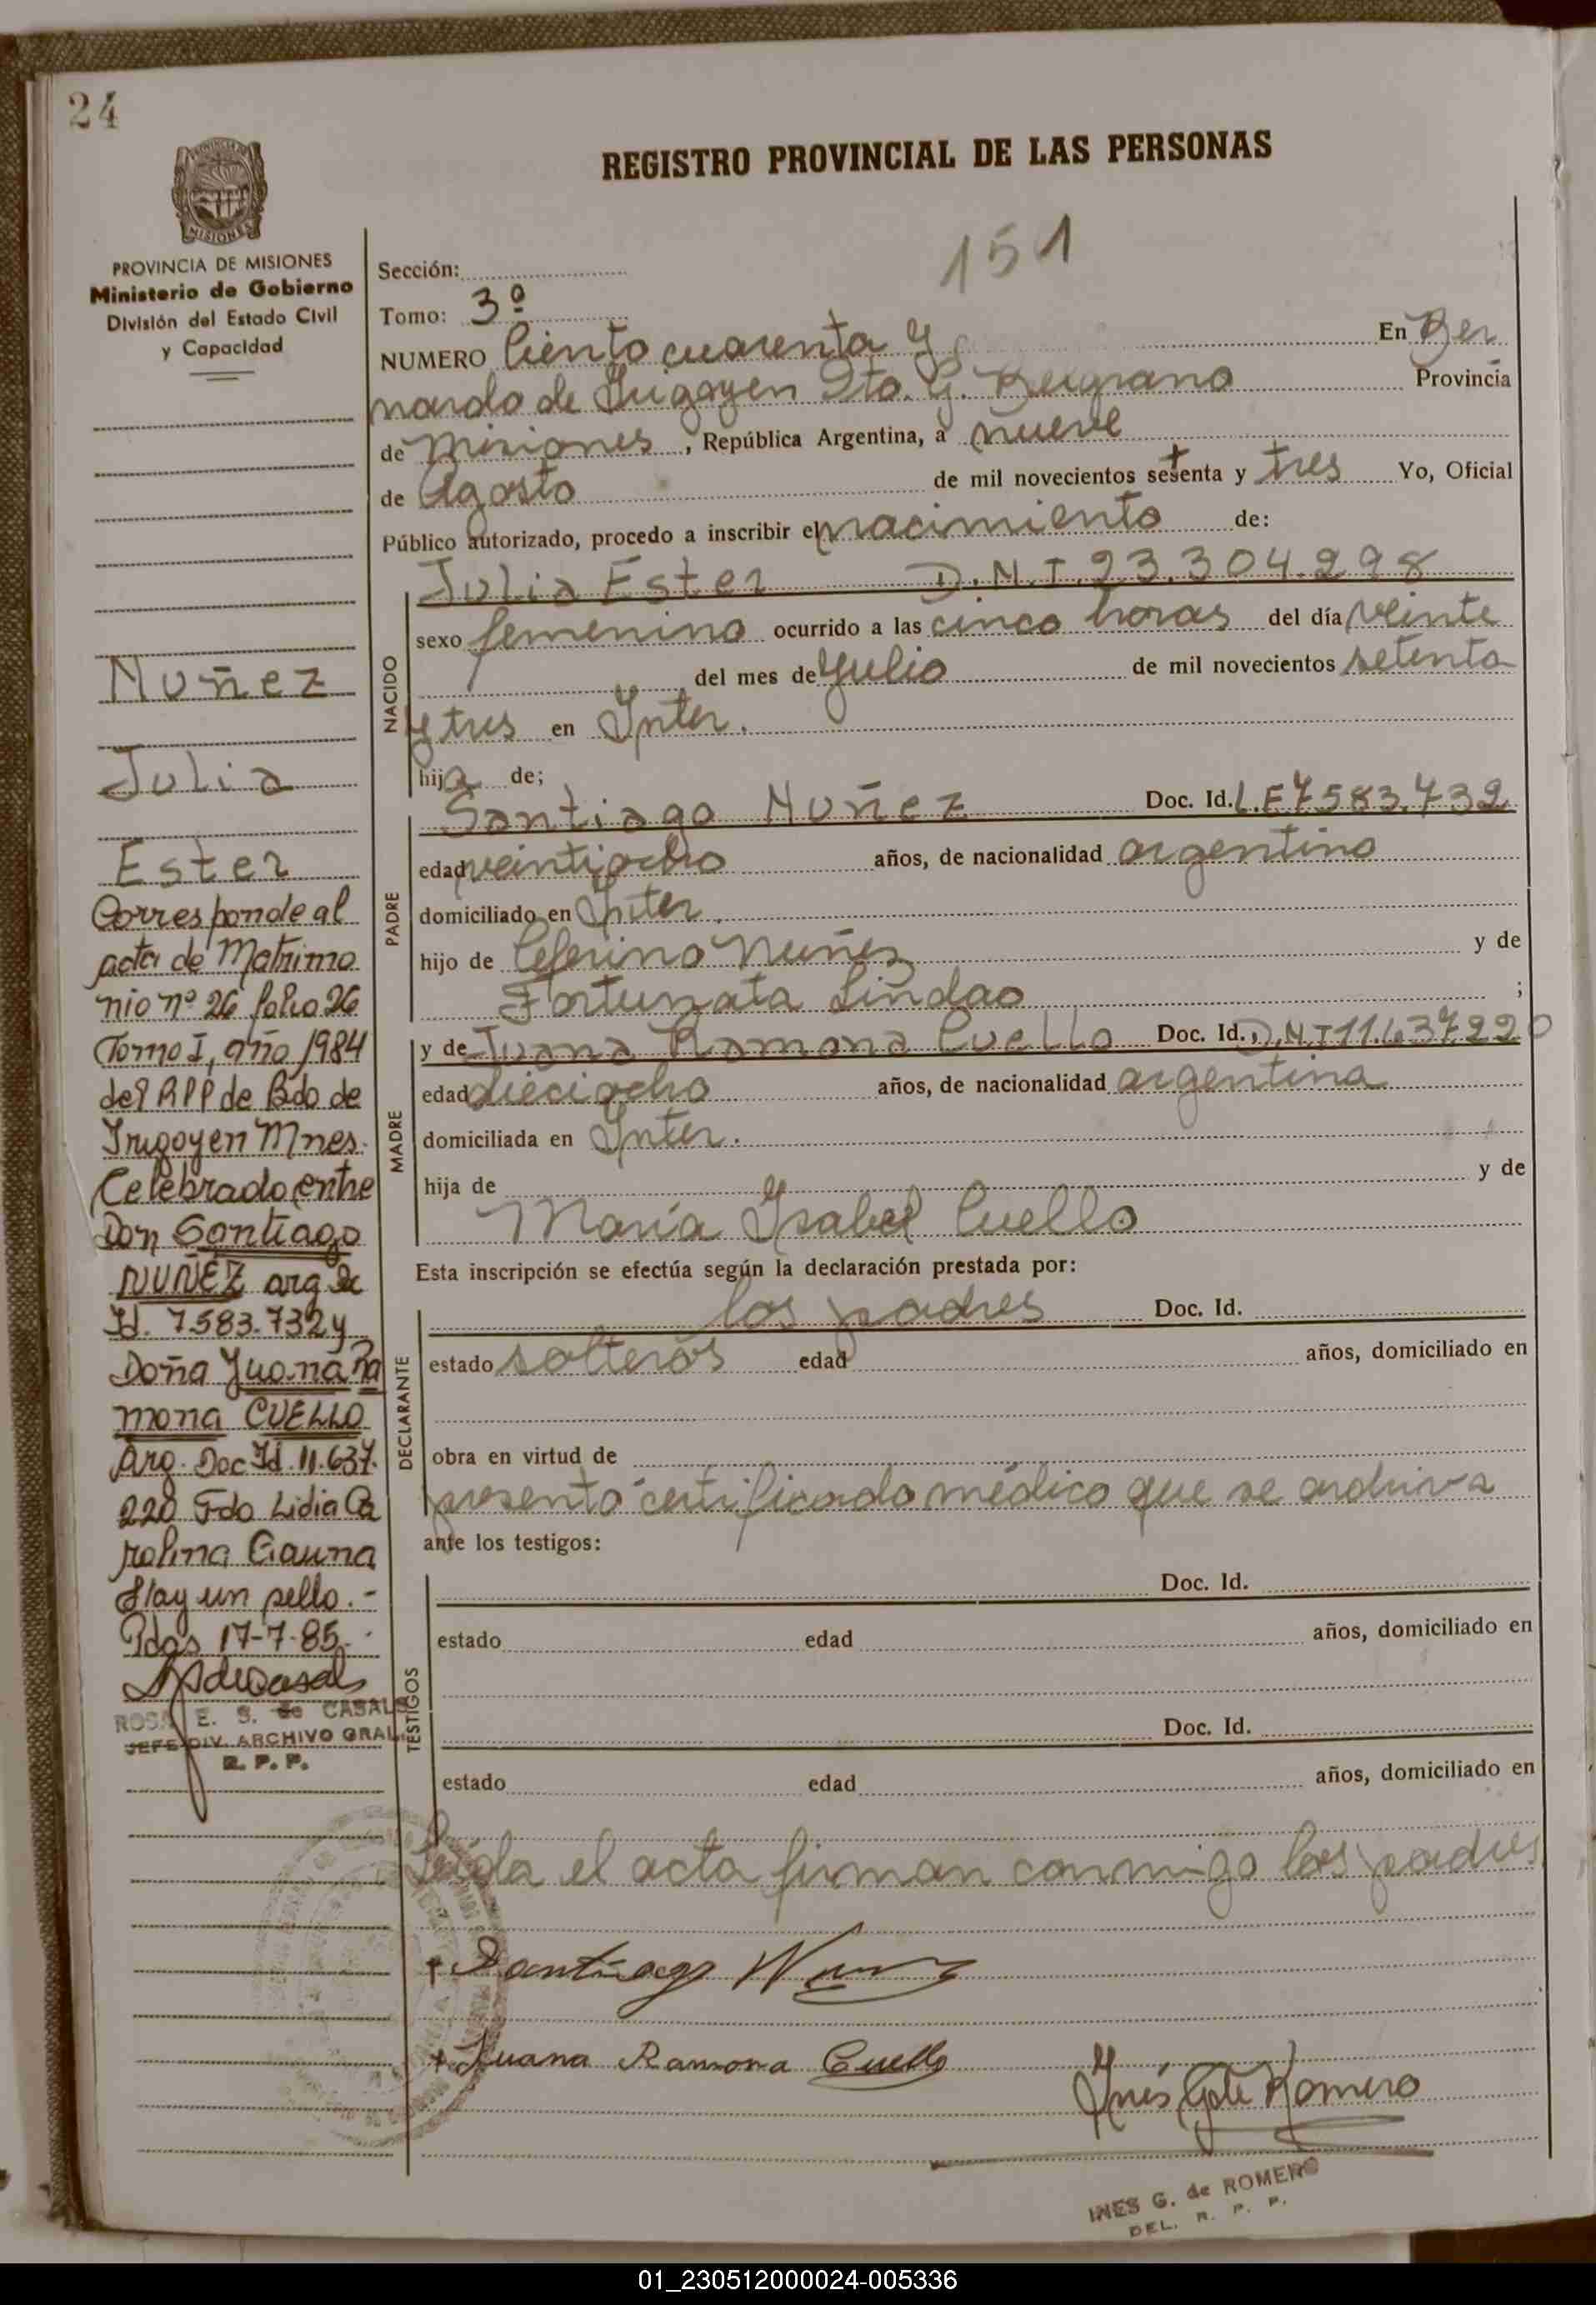 24
REGISTRO PROVINCIAL DE LAS PERSONAS
MISIONES
PROVINCIA DE MISIONES
Ministerio de Gobierno
División del Estado Civil
y Capacidad
151
Sección:
Tomo: 3º
NUMERO Ciento cuarenta y En Ber
nardo de Irigoyen Dto. G. Belgrano Provincia
de Misiones, República Argentina, a nueve
de Agosto de mil novecientos setenta y tres Yo, Oficial
Público autorizado, procedo a inscribir el nacimiento de:
Julia Ester D.N.I. 23.304.298
NACIDO
sexo femenino ocurrido a las cinco horas del día veinte
del mes de Julio de mil novecientos setenta
y tres en Inter.
hija de;
PADRE
Santiago Nuñez Doc. Id. L.E 7583.732
edad veintiocho años, de nacionalidad argentino
domiciliado en Inter.
hijo de Ceferino Nuñez y de
Fortunata Lindao ;
MADRE
y de Juana Ramona Cuello Doc. Id. D.N.I 11.637220
edad dieciocho años, de nacionalidad argentina
domiciliada en Inter.
hija de y de
María Isabel Cuello
Esta inscripción se efectúa según la declaración prestada por:
DECLARANTE
los padres Doc. Id.
estado solteros edad años, domiciliado en
obra en virtud de
presentó certificado médico que se archiva
ante los testigos:
TESTIGOS
Doc. Id.
estado edad años, domiciliado en
Doc. Id.
estado edad años, domiciliado en
Leída el acta firman conmigo los padres
Santiago Nuñez
Juana Ramona Cuello
Inés Romero
INES G. de ROMERO
DEL. R. P. P.
Nuñez
Julia
Ester
Corresponde al
acta de Matrimo
nio nº 26 folio 26
Tomo I, año 1984
del RPP de Bdo de
Irigoyen Mnes.
Celebrado entre
Don Santiago
NUÑEZ arg Dc
Id. 7.583.732 y
Doña Juana Ra
mona CUELLO
Arg. Doc Id. 11.637.
220 Fdo Lidia Ca
rolina Gauna
Hay un sello.-
Pdas 17-7-85.
ROSA E. S. de CASALS
JEFE DIV. ARCHIVO GRAL.
R. P. P.
01_230512000024-005336